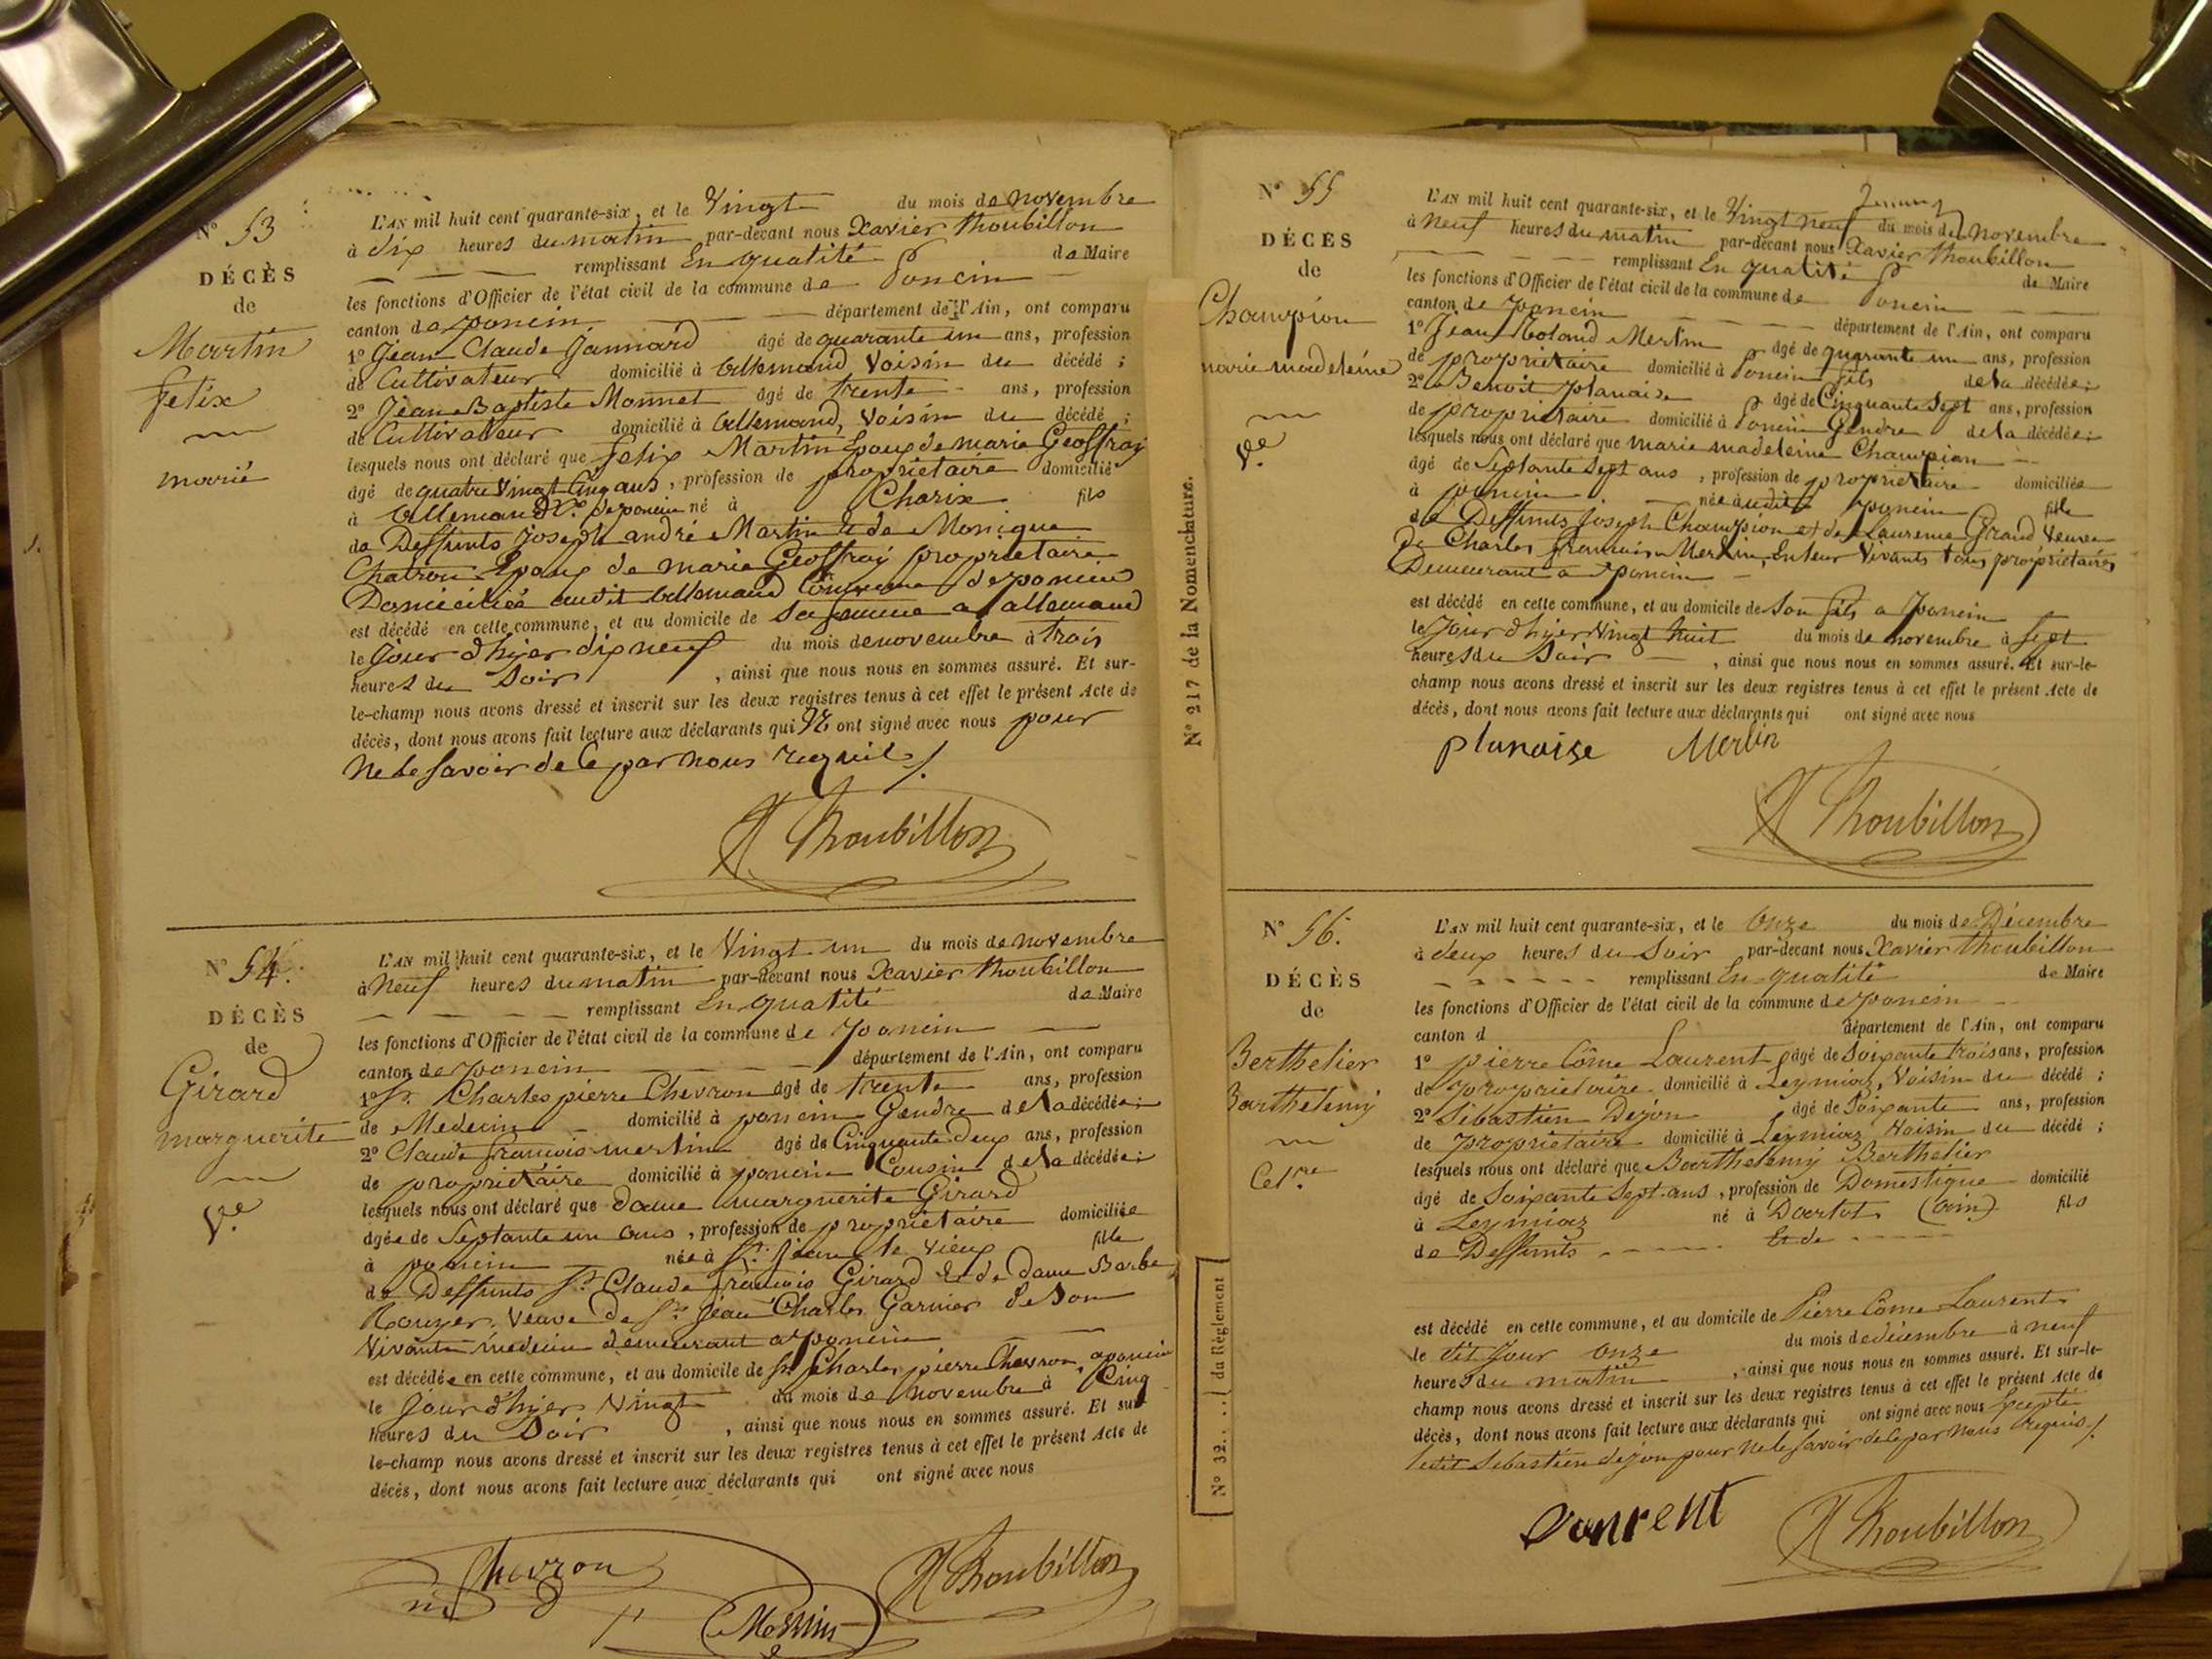 Nº 53
DÉCÈS
de
Martin
felix
marié
L'AN mil huit cent quarante-six, et le Vingt du mois de novembre
à dix heures du matin par-devant nous Xavier thoubillon
remplissant En qualité de Maire
les fonctions d'Officier de l'état civil de la commune de Poncin
canton de poncin département de l'Ain, ont comparu
1º Jean Claude Jannard âgé de quarante un ans, profession
de Cultivateur domicilié à allemand Voisin du décédé ;
2º Jean Baptiste Monnet âgé de trente ans, profession
de Cultivateur domicilié à allemand, Voisin du décédé ;
lesquels nous ont déclaré que felix Martin Epoux de marie Geoffray
âgé de quatre Vingt Cinq ans, profession de propriétaire domicilié
à allemand Cne de poncin né à Charix fils
de Deffunts Joseph andré Martin & de Monique
Chatron Epoux de marie Geoffray propriétaire
Domiciliés audit allemand Commune de poncin
est décédé en cette commune, et au domicile de sa femme a allemand
le Jour d'hyer dix neuf du mois de novembre à trois
heures du Soir , ainsi que nous nous en sommes assuré. Et sur-
le-champ nous avons dressé et inscrit sur les deux registres tenus à cet effet le présent Acte de
décès, dont nous avons fait lecture aux déclarants qui N'ont signé avec nous pour
ne le savoir de ce par nous requis /.
X Thoubillon
Nº 54.
DÉCÈS
de
Girard
marguerite
Ve
L'AN mil huit cent quarante-six, et le Vingt un du mois de novembre
à Neuf heures du matin par-devant nous Xavier thoubillon
remplissant En qualité de Maire
les fonctions d'Officier de l'état civil de la commune de poncin
canton de poncin département de l'Ain, ont comparu
1º Sr. Charles pierre Chevron âgé de trente ans, profession
de Medecin domicilié à poncin Gendre de la décédée ;
2º Claude françois merlin âgé de Cinquante deux ans, profession
de propriétaire domicilié à poncin Cousin de la décédée ;
lesquels nous ont déclaré que dame marguerite Girard
âgée de Septante un ans, profession de propriétaire domiciliée
à poncin née à St. Jean le vieux fille
de Deffunts Sr Claude françois Girard & de dame Barbe
Rouyer, Veuve de Sr. Jean Charles Garnier de Son
Vivant médecin demeurant a poncin
est décédée en cette commune, et au domicile de Sr Charles pierre Chevron, a poncin
le Jour d'hyer Vingt du mois de novembre à Cinq
heures du Soir , ainsi que nous nous en sommes assuré. Et sur
le-champ nous avons dressé et inscrit sur les deux registres tenus à cet effet le présent Acte de
décès, dont nous avons fait lecture aux déclarants qui ont signé avec nous
Chevron
Merlin
X Thoubillon
Nº 217 de la Nomenclature.
Nº 32... du Règlement
Nº 55
DÉCÈS
de
Champion
marie madeleine
Ve.
L'AN mil huit cent quarante-six, et le Vingt neuf du mois de novembre
à Neuf heures du matin par-devant nous Xavier thoubillon
remplissant En qualité de Maire
les fonctions d'Officier de l'état civil de la commune de Poncin
canton de poncin département de l'Ain, ont comparu
1º Jean Roland Merlin âgé de quarante un ans, profession
de propriétaire domicilié à Poncin fils de la décédée ;
2º Benoit planaise âgé de Cinquante Sept ans, profession
de propriétaire domicilié à Poncin Gendre de la décédée ;
lesquels nous ont déclaré que marie madeleine Champion
âgé de Septante Sept ans, profession de propriétaire domiciliée
à poncin née audit poncin fille
de Deffunts Joseph Champion et de Laurence Girard Veuve
De Charles françois Merlin, En leur Vivants tous propriétaires
Demeurant a poncin
est décédé en cette commune, et au domicile de Son fils a poncin
le Jour d'hyer Vingt huit du mois de novembre à Sept
heures du Soir , ainsi que nous nous en sommes assuré. Et sur-le-
champ nous avons dressé et inscrit sur les deux registres tenus à cet effet le présent Acte de
décès, dont nous avons fait lecture aux déclarants qui ont signé avec nous
planaise Merlin
X Thoubillon
Nº 56.
DÉCÈS
de
Berthelier
Barthelemy
Celre.
L'AN mil huit cent quarante-six, et le Onze du mois de Décembre
à deux heures du Soir par-devant nous Xavier thoubillon
remplissant En qualité de Maire
les fonctions d'Officier de l'état civil de la commune de poncin
canton d département de l'Ain, ont comparu
1º pierre Côme Laurent âgé de Soixante trois ans, profession
de propriétaire domicilié à Leymiaz, Voisin du décédé ;
2º Sébastien Dejon âgé de Soixante ans, profession
de propriétaire domicilié à Leymiaz Voisin du décédé ;
lesquels nous ont déclaré que Barthelemy Berthelier
âgé de Soixante Sept ans, profession de Domestique domicilié
à Leymiaz né à Dortot (ain) fils
de Deffunts Et de
est décédé en cette commune, et au domicile de Pierre Côme Laurent
le dit Jour onze du mois de décembre à neuf
heures du matin , ainsi que nous nous en sommes assuré. Et sur-le-
champ nous avons dressé et inscrit sur les deux registres tenus à cet effet le présent Acte de
décès, dont nous avons fait lecture aux déclarants qui ont signé avec nous Excepté
ledit Sebastien dejon pour ne le savoir de ce par nous requis /.
Laurent
X Thoubillon